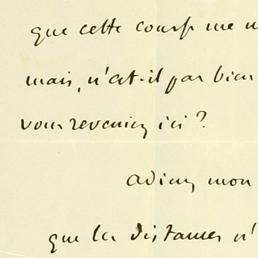 que cette course me
mais, n'est-il pas bien
vous reveniez ici ?
adieu mon
que les distances n'